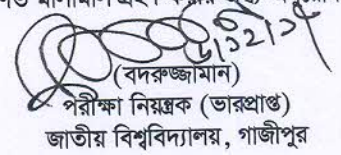 ৮/১২/১৭
(বদরুজ্জামান)
পরীক্ষা নিয়ন্ত্রক (ভারপ্রাপ্ত)
জাতীয় বিশ্ববিদ্যালয়, গাজীপুর